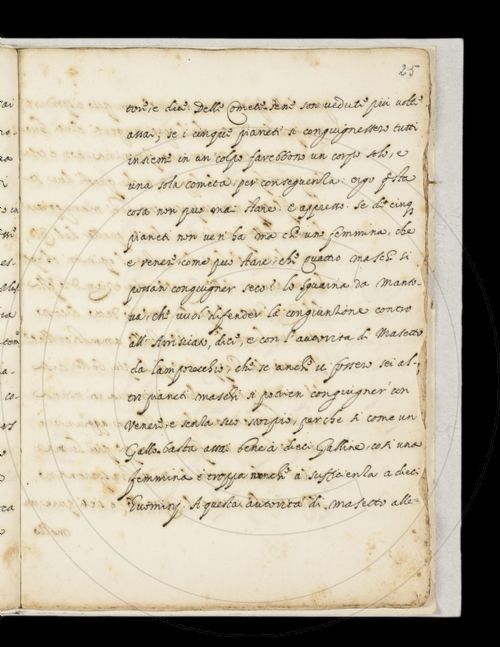 25
tore, e dice delle Comete sene son vedute più volte
assai; se i cinque pianeti si conguignessero tutti
insieme in un colpo farebbono un corpo solo, e
una sola cometa per conseguenza: ergo qsta
cosa non può mai stare: e appresso se di cinq
pianeti non ven'ha ma che uno femmina, che
è venere, come può stare, che quattro maschi si
possan conguigner seco? lo Squaina da Manto-
va, che vuol difender la congiuntione contro
all'Arrisicato, dice, e con l'autorità di Masetto
da lamporecchio, che se anche ve fossero sei al-
tri pianeti maschi si potrien conguigner con
Venere, e senza suo storpio, perche si come un
Gallo basta assai bene à dieci Galline, così una
femmina è troppa nonche à suffitienza a dieci
huominj. A questa autorità di masetto alle-